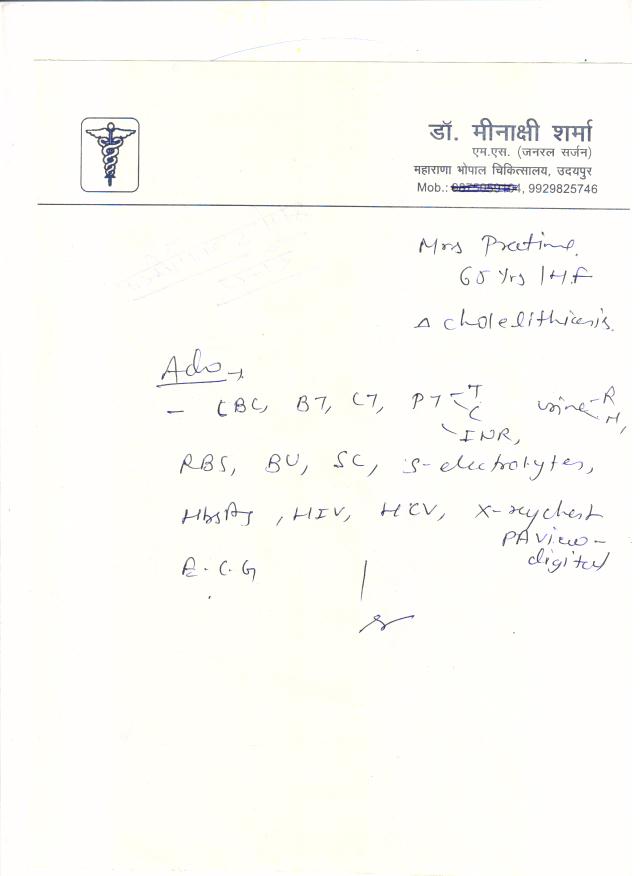 डॉ. मीनाक्षी शर्मा
एम.एस. (जनरल सर्जन)
महाराणा भोपाल चिकित्सालय, उदयपुर
Mob.: 9929825746
Mrs Pratima.
65 Yrs / H.F
Δ cholelithiasis.
Adv →
– CBC, BT, CT, PT T C INR, urine R M,
RBS, BU, SC, S-electrolytes,
HbsAg, HIV, HCV, X-ray chest
PA view –
digital
E.C.G